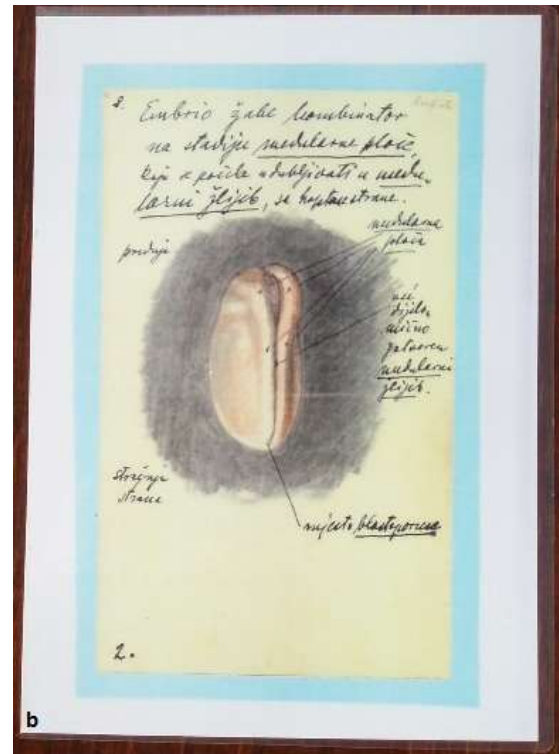 3. Embrio žabe kombinator
na stadiju medularne ploče,
koja se počela udubljivati u medu-
larni žlijeb, sa hrptene strane.
medularna
ploča
prednja
već
djelo-
mično
zatvoren
medularni
žlijeb.
stražnja
strana
mjesto blastoporusa
2.
b